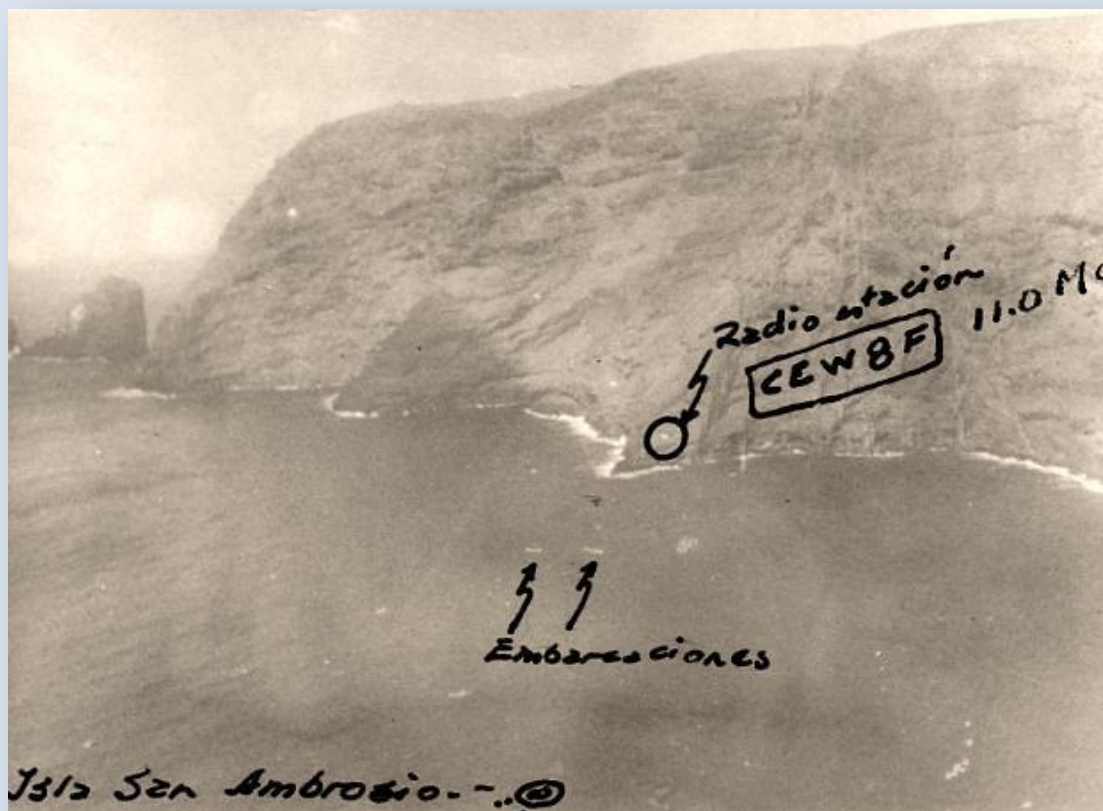 Radio estación
CEW8F 11.0 MC
Embarcaciones
Isla San Ambrosio.-